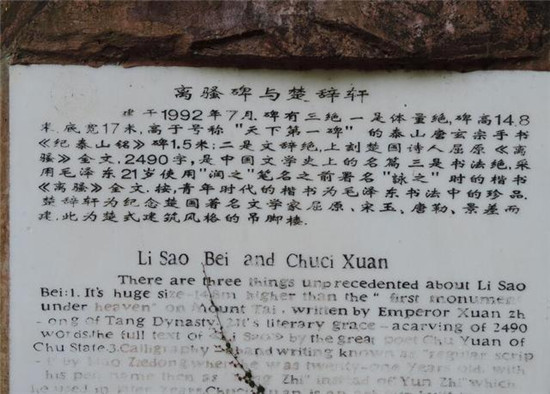 离骚碑与楚辞轩
建于1992年7月.碑有三绝.一是体量绝,碑高14.8
米.底宽17米,高于号称"天下第一碑"的泰山唐玄宗手书
《纪泰山铭》碑1.5米;二是文辞绝,上刻楚国诗人屈原《离
骚》全文.2490字,是中国文学史上的名篇三是书法绝.采
用毛泽东21岁使用"润之"笔名之前署名"詠之"时的楷书
《离骚》全文.按,青年时代的楷书为毛泽东书法中的珍品.
楚辞轩为纪念楚国著名文学家屈原、宋玉、唐勒、景差而
建.此为楚式建筑风格的吊脚楼.
Li Sao Bei and Chuci Xuan
There are three things unprecedented about Li Sao
Bei:1. It's huge size higher than the " first monument
under heaven" on Mount Tai , written by Emperor Xuan zh
- ong of Tang Dynasty. It's literary grace - a carving of 2490
words/the full text of "Li Sao" by the great poet Chu Yuan of
Chu State 3.Calligraphy hand writing known as "regular scrip
by Mao Zedong when he was twenty-one years old, with
his pen name then as Zhi" instead of Yun Zhi" which
he used in later years